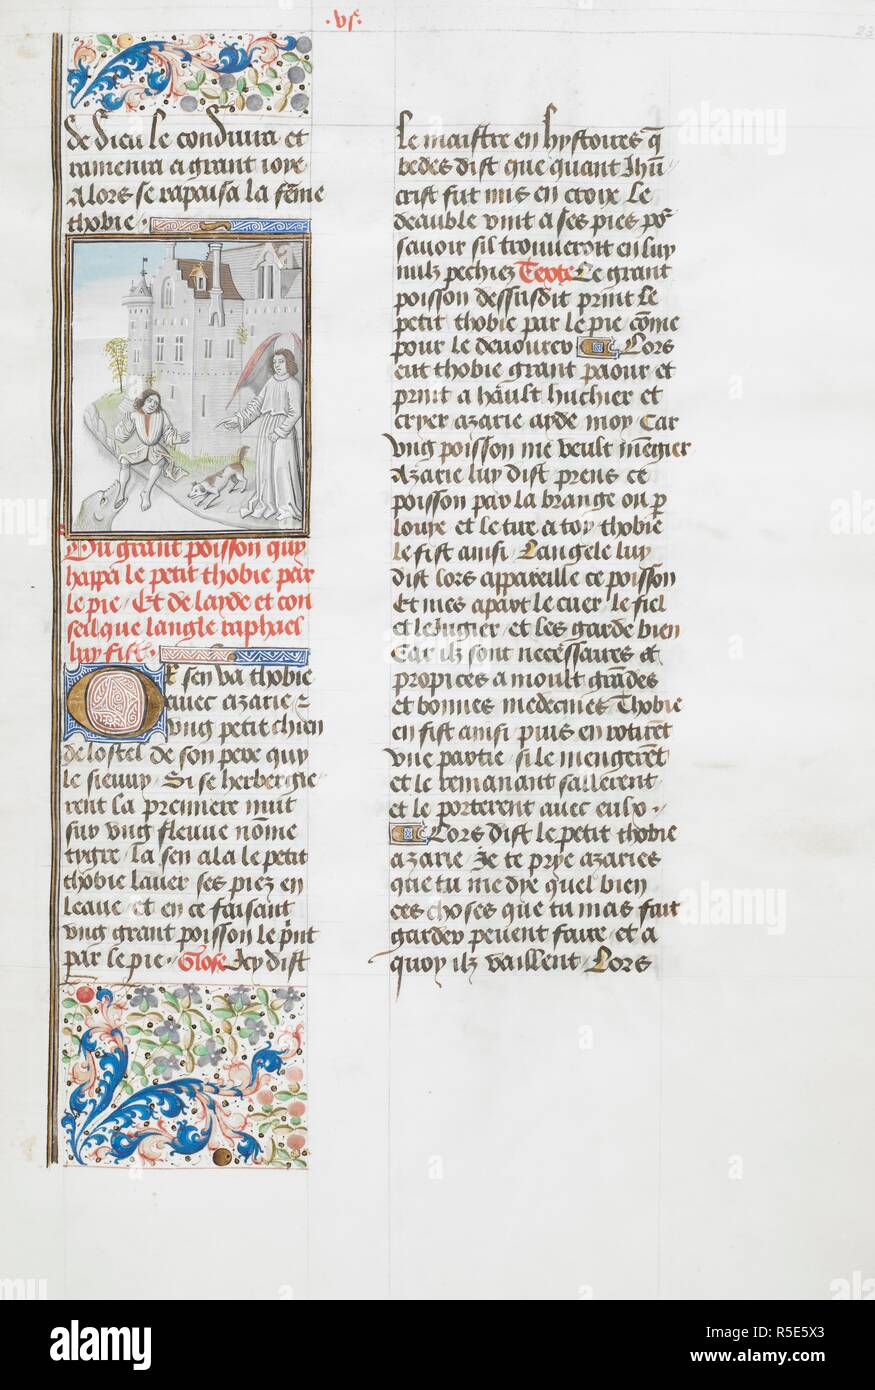 .vi^e.
23
de dieu le conduira et
ramenra a grant ioye
Alors se rapaisa la fẽme
thobie .
Du grant poisson quy
happa le petit thobie par
le pie / Et de layde et con
seil que langle raphael
luy fist .
OR sen va thobie
avec azarie z
vng petit chien
de lostel de son pere quy
le sieuuy / Si se herbergie
rent la premiere nuit
suy vng fleuue nõme
tygre / la sen ala le petit
thobie lauer ses piez en
leaue / et en ce faisant
vng grant poisson le p̃nt
par le pie / Glose Icy dist
le maistre en hystoires q̃
bedes dist que quant Ihũ
crist fut mis en croix le
deauble vint a ses pies po^r
sauoir sil trouueroit en luy
nulz pechiez Texte Le grant
poisson dessusdit print le
petit thobie par le pie cõme
pour le deuourer Lors
eut thobie grant paour et
print a hault huchier et
cryer azarie ayde moy Car
vng poisson me veult mẽgier
Azarie luy dist prens ce
poisson par la brange ou p
louye et le tire a toy thobie
le fist ainsi / Langele luy
dist lors appareille ce poisson
Et mes apart le cuer / le fiel
et le iugier / et les garde bien
Car ilz sont necessaires et
propices a moult grãdes
et bonnes medecines Thobie
en fist ainsi / puis en rotirẽt
vne partie / si le mengerẽt
et le remanant sallerent
et le porterent avec eulx .
Lors dist le petit thobie
azarie / Je te prye azaries
que tu me dye quel bien
ces choses que tu mas fait
garder peuent faire / et a
quoy ilz vaillent / Lors
alamy
alamy
alamy
alamy
alamy
Image ID: R5E5X3
www.alamy.com